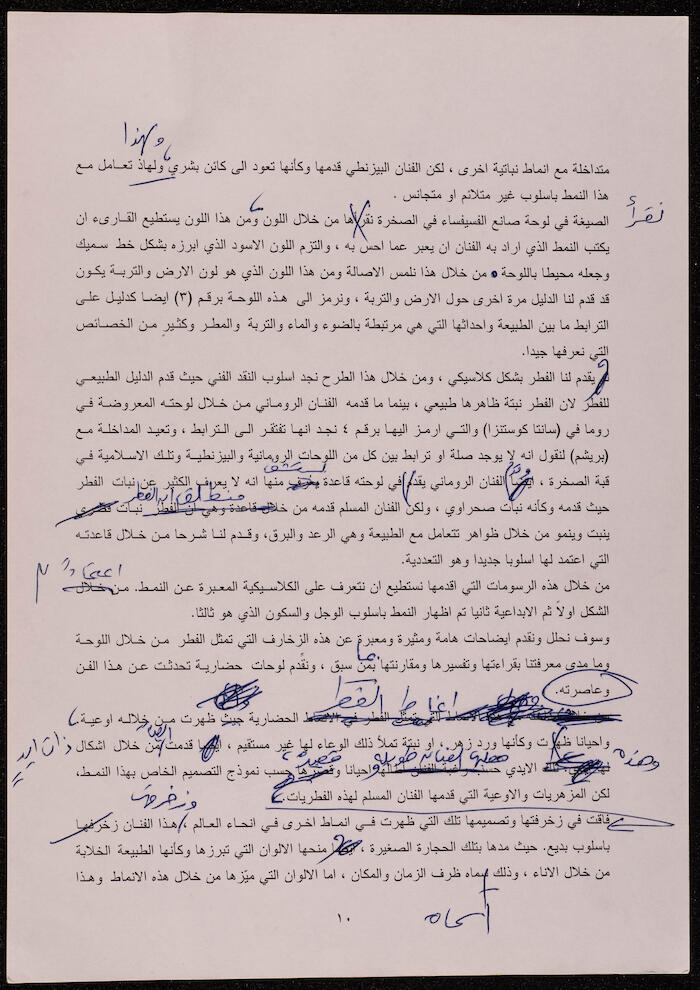 ولهذا
متداخلة مع انماط نباتية اخرى ، لكن الفنان البيزنطي قدمها وكأنها تعود الى كائن بشري ولهاذ تعامل مع
هذا النمط باسلوب غير متلائم او متجانس .
نقرأ
الصيغة في لوحة صانع الفسيفساء في الصخرة نقرأها من خلال اللون ومن هذا اللون يستطيع القارىء ان
يكتب النمط الذي اراد به الفنان ان يعبر عما احس به ، والتزم اللون الاسود الذي ابرزه بشكل خط سميك
وجعله محيطا باللوحة . من خلال هذا نلمس الاصالة ومن هذا اللون الذي هو لون الارض والتربة يكون
قد قدم لنا الدليل مرة اخرى حول الارض والتربة ، ونرمز الى هذه اللوحة برقم (٣) ايضا كدليل على
الترابط ما بين الطبيعة واحداثها التي هي مرتبطة بالضوء والماء والتربة والمطر وكثير من الخصائص
التي نعرفها جيدا.
يقدم لنا الفطر بشكل كلاسيكي ، ومن خلال هذا الطرح نجد اسلوب النقد الفني حيث قدم الدليل الطبيعي
للفطر لان الفطر نبتة ظاهرها طبيعي ، بينما ما قدمه الفنان الروماني من خلال لوحته المعروضة في
روما في (سانتا كوستنزا) والتي ارمز اليها برقم ٤ نجد انها تفتقر الى الترابط ، وتعيد المداخلة مع
(بريشم) لنقول انه لا يوجد صلة او ترابط بين كل من اللوحات الرومانية والبيزنطية وتلك الاسلامية في
قبة الصخرة ، الفنان الروماني يقدم في لوحته قاعدة منها انه لا يعرف الكثير عن نبات الفطر
حيث قدمه وكأنه نبات صحراوي ، ولكن الفنان المسلم قدمه من خلال قاعدة وهي ان الفطر نبات فطري
ينبت وينمو من خلال ظواهر تتعامل مع الطبيعة وهي الرعد والبرق، وقدم لنا شرحا من خلال قاعدته
التي اعتمد لها اسلوبا جديدا وهو التعددية.
من خلال هذه الرسومات التي اقدمها نستطيع ان نتعرف على الكلاسيكية المعبرة عن النمط. من خلال
الشكل اولاً ثم الابداعية ثانيا تم اظهار النمط باسلوب الوجل والسكون الذي هو ثالثا.
وسوف نحلل ونقدم ايضاحات هامة ومثيرة ومعبرة عن هذه الزخارف التي تمثل الفطر من خلال اللوحة
وما مدى معرفتنا بقراءتها وتفسيرها ومقارنتها بمن سبق ، ونقدم لوحات حضارية تحدثت عن هذا الفن
وعاصرته.
الفطر في الانماط الحضارية حيث ظهرت من خلاله اوعية،
واحيانا ظهرت وكأنها ورد زهر، او نبتة تملأ ذلك الوعاء لها غير مستقيم ، قدمت من خلال اشكال
الايدي واحيانا حسب نموذج التصميم الخاص بهذا النمط،
لكن المزهريات والاوعية التي قدمها الفنان المسلم لهذه الفطريات.
فاقت في زخرفتها وتصميمها تلك التي ظهرت في انماط اخرى في انحاء العالم ، هذا الفنان زخرفها
باسلوب بديع. حيث مدها بتلك الحجارة الصغيرة ، منحها الالوان التي تبرزها وكأنها الطبيعة الخلابة
من خلال الاناء ، وذلك سماه ظرف الزمان والمكان ، اما الالوان التي ميّزها من خلال هذه الانماط وهذا
١٠